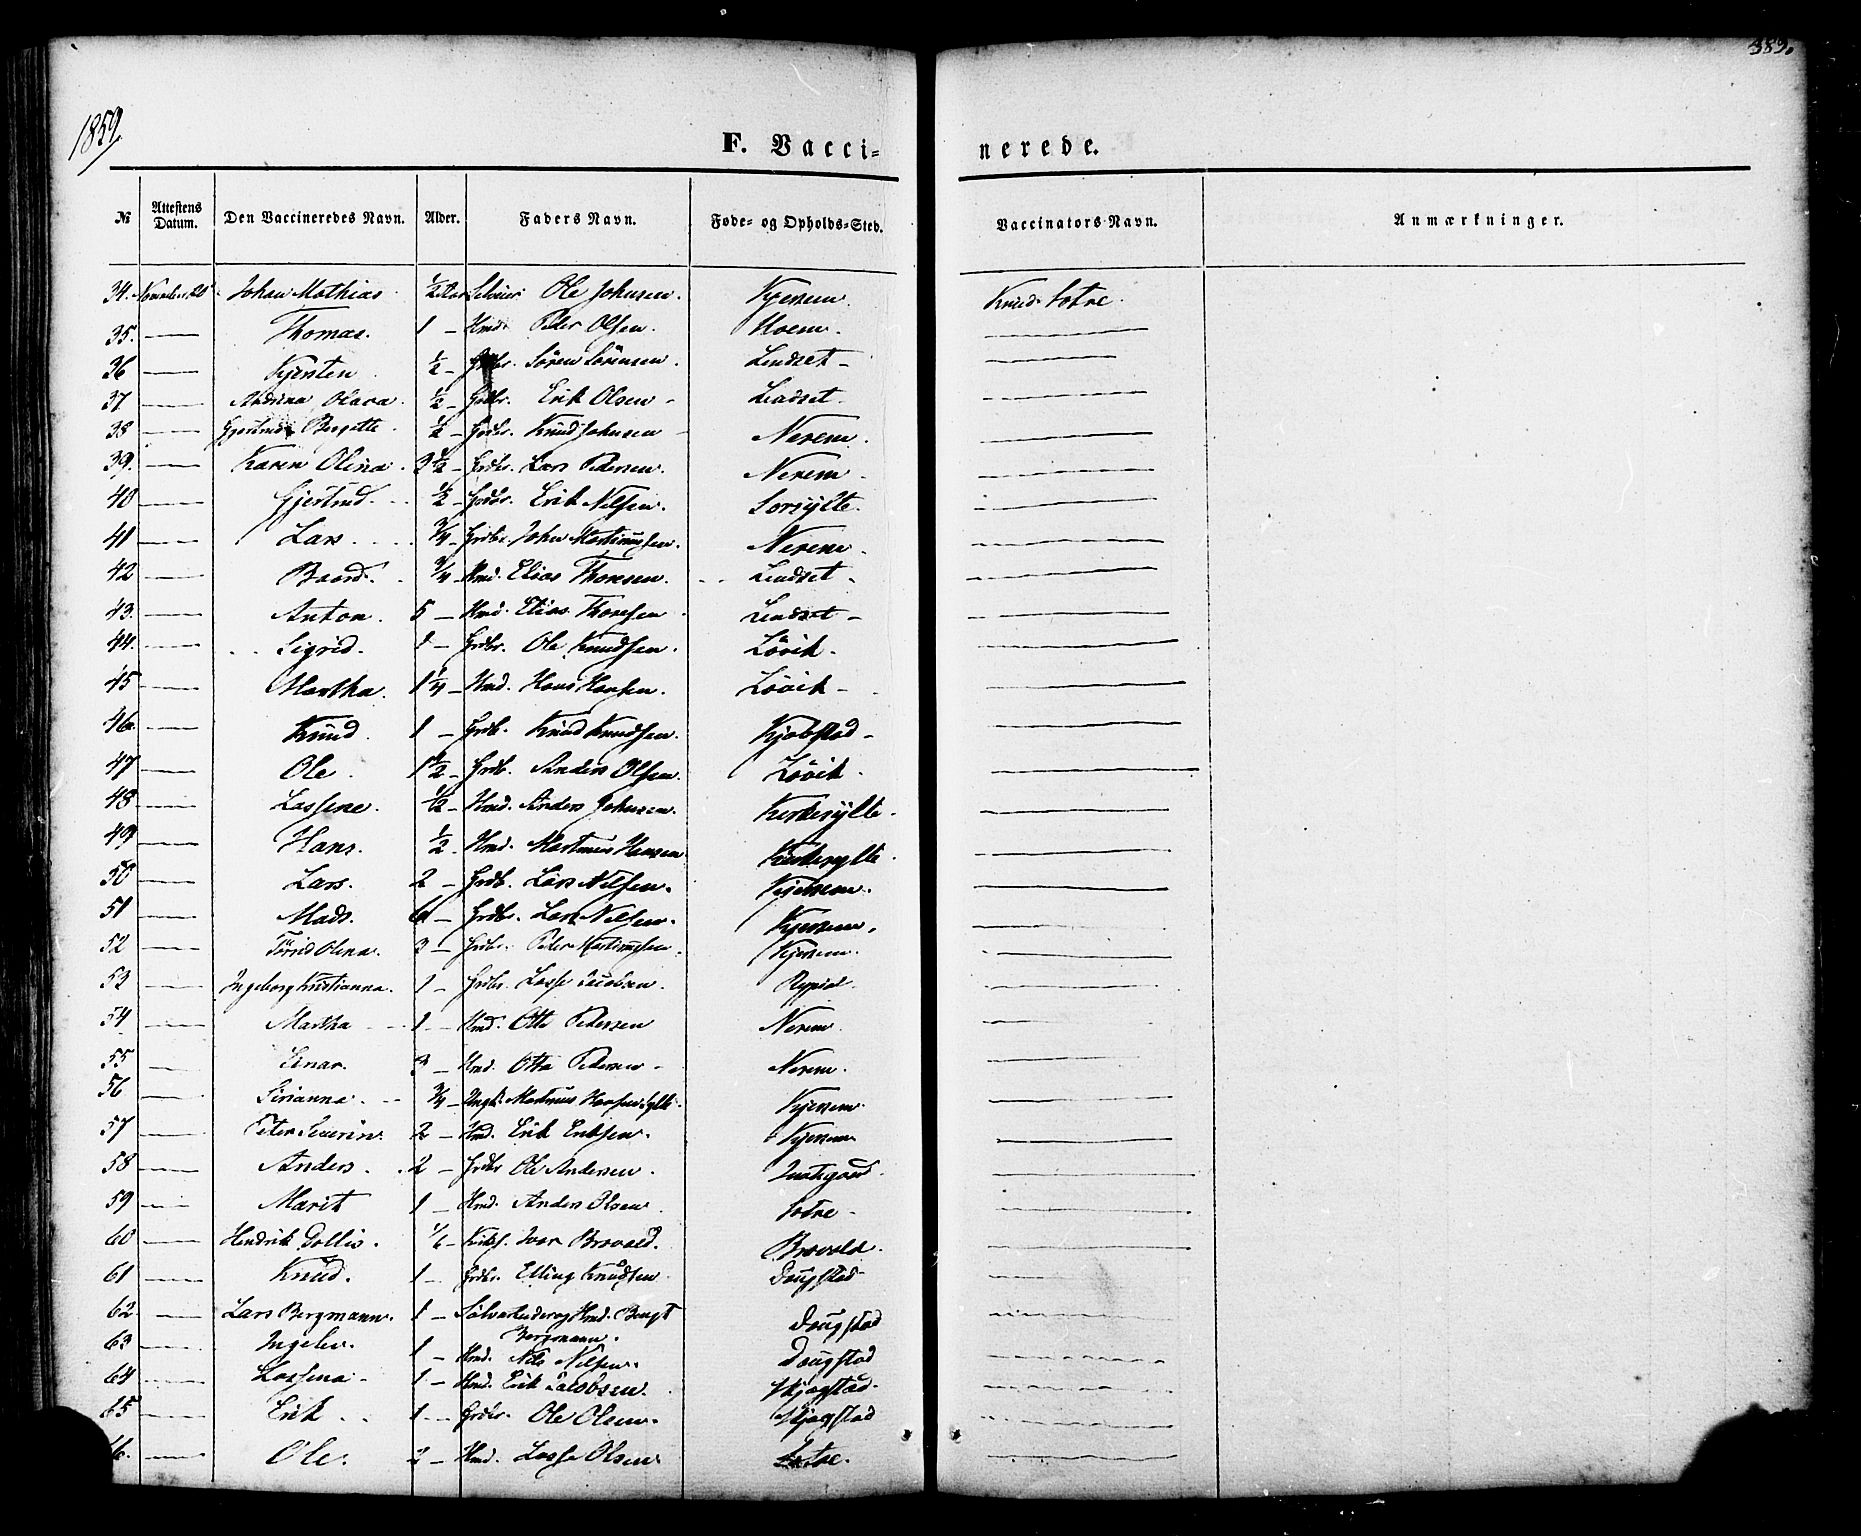 389.
1859
F. Vacci- nerede.
№ Attestens Datum. Den Vaccineredes Navn. Alder. Faders Navn. Føde- og Opholds-Sted. Vaccinators Navn. Anmærkninger.
34. Johan Mathias ½ Ole Johnsen. Kjersem. Knud Sotre.
35. — Thomas. 1 — Hmd. Peder Olsen. Hoem. —
36 — Kjersten ½ — Grdbr. Sören Sörensen. Lindset — —
37 — Andrina Olava. ½ — Grdbr. Erik Olsen — Lindset. —
38 — Gjertrud Bergitte. ½ — Grdbr. Knud Johnsen — Nerem. —
39. — Karen Olina. 3½ — Grdbr. Lars Pedersen. Nerem —
40 — Gjertrud. ½ — Grdbr. Erik Nilsen. Sorsylte. —
41 — Lars. ¾ — Grdbr. John Martinussen. Nerem. —
42 — Baard. ¾ — Hmd. Elias Thoresen. Lindset — —
43. — Anton. 5 — Hmd. Elias Thoresen Lindset — —
44. — Sigrid. 1 — Grdbr. Ole Knudsen. Lövik. —
45 — Martha. 1¼ — Hmd. Hans Hansen. Lövik — —
46. — Knud. 1 — Grdb. Knud Knudsen. Kjøbstad — —
47 — Ole. 1½ — Grdb. Anders Olsen. Lövik. —
48 — Lassine. ½ — Hmd. Anders Johnsen. Kirkesylte. —
49 — Hans. ½ — Hmd. Martinus Hansen Kirkesylte. —
50 — Lars. 2 — Grdb. Lars Nilsen. Kjersem. —
51 — Mads. 6 — Grdbr. Lars Nilsen. Kjersem. —
52 — Törrid Olina. 3 — Grdbr. Peter Martinussen. Kjersem. —
53 — Ingeborg Kristianna. 1 — Grdbr. Lasse Jacobsen. Rypdal. —
54 — Martha 1 — Hmd. Otte Pedersen Nerem. —
55 — Einar. 3 — Hmd. Otte Pedersen — Nerem. —
56 — Sirianna. ¾ — Ungk. Martinus Hansen Sylte. Kjersem —
57 — Peter Severin. 2 — Hmd. Erik Eriksen. Kjersem —
58 — Anders. 2 — Grdbr Ole Andersen. —
59 — Marit 1 — Hmd. Anders Olsen. Sotre — —
60 — Hendrik Dollis. 1/6 — Ivar Brovold. Brovold. —
61 — Knud. 1 — Grdbr. Elling Knudsen Dougstad —
62. — Lars Bergmann. 1 — Hmd. Bengt
Bergmann. Dougstad —
63 — Ingelev. 1 — Hmd. Nils Nilsen. Dougstad —
64 — Lassina — 1 — Hmd. Erik Jacobsen. Skjegstad. —
65 — Erik 1 — Grdbr. Ole Olsen. Skjegstad —
66. — Ole. 2 — Hmd. Lasse Olsen Sotre. —